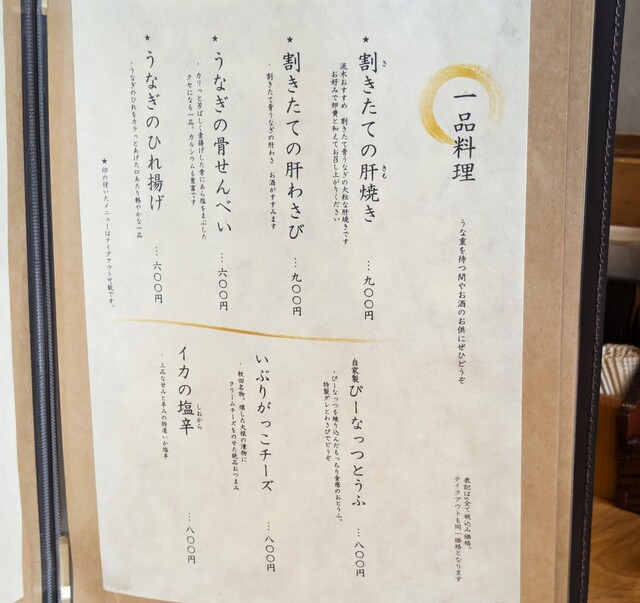 一品料理
うな重を待つ間やお酒のお供にぜひどうぞ
表記は全て税込み価格。
テイクアウトも同一価格となります
★ 割きたての肝焼き … 九〇〇円
さ
きも
流木おすすめ 割きたて青うなぎの大粒な肝焼きです
お好みで卵黄と和えてお召し上がりください
★ 割きたての肝わさび … 九〇〇円
・割きたて青うなぎの肝わさ お酒がすすみます
★ うなぎの骨せんべい … 六〇〇円
・カリっと芳ばしく素揚げした骨にあら塩をまぶした
クセになる一品。カルシウムも豊富です
★ うなぎのひれ揚げ … 六〇〇円
・うなぎのひれをカラっとあげた口あたり軽やかな一品
★印の付いたメニューはテイクアウト可能です。
自家製 ぴーなっつとうふ … 八〇〇円
・ぴーなっつを練り込んだもっちり食感のおとうふ。
特製ダレとわさびでどうぞ
いぶりがっこチーズ … 八〇〇円
・秋田名物。燻した大根の漬物に
クリームチーズをのせた絶品おつまみ
イカの塩辛 … 八〇〇円
しおから
・上品な甘みと辛みの
いか塩辛